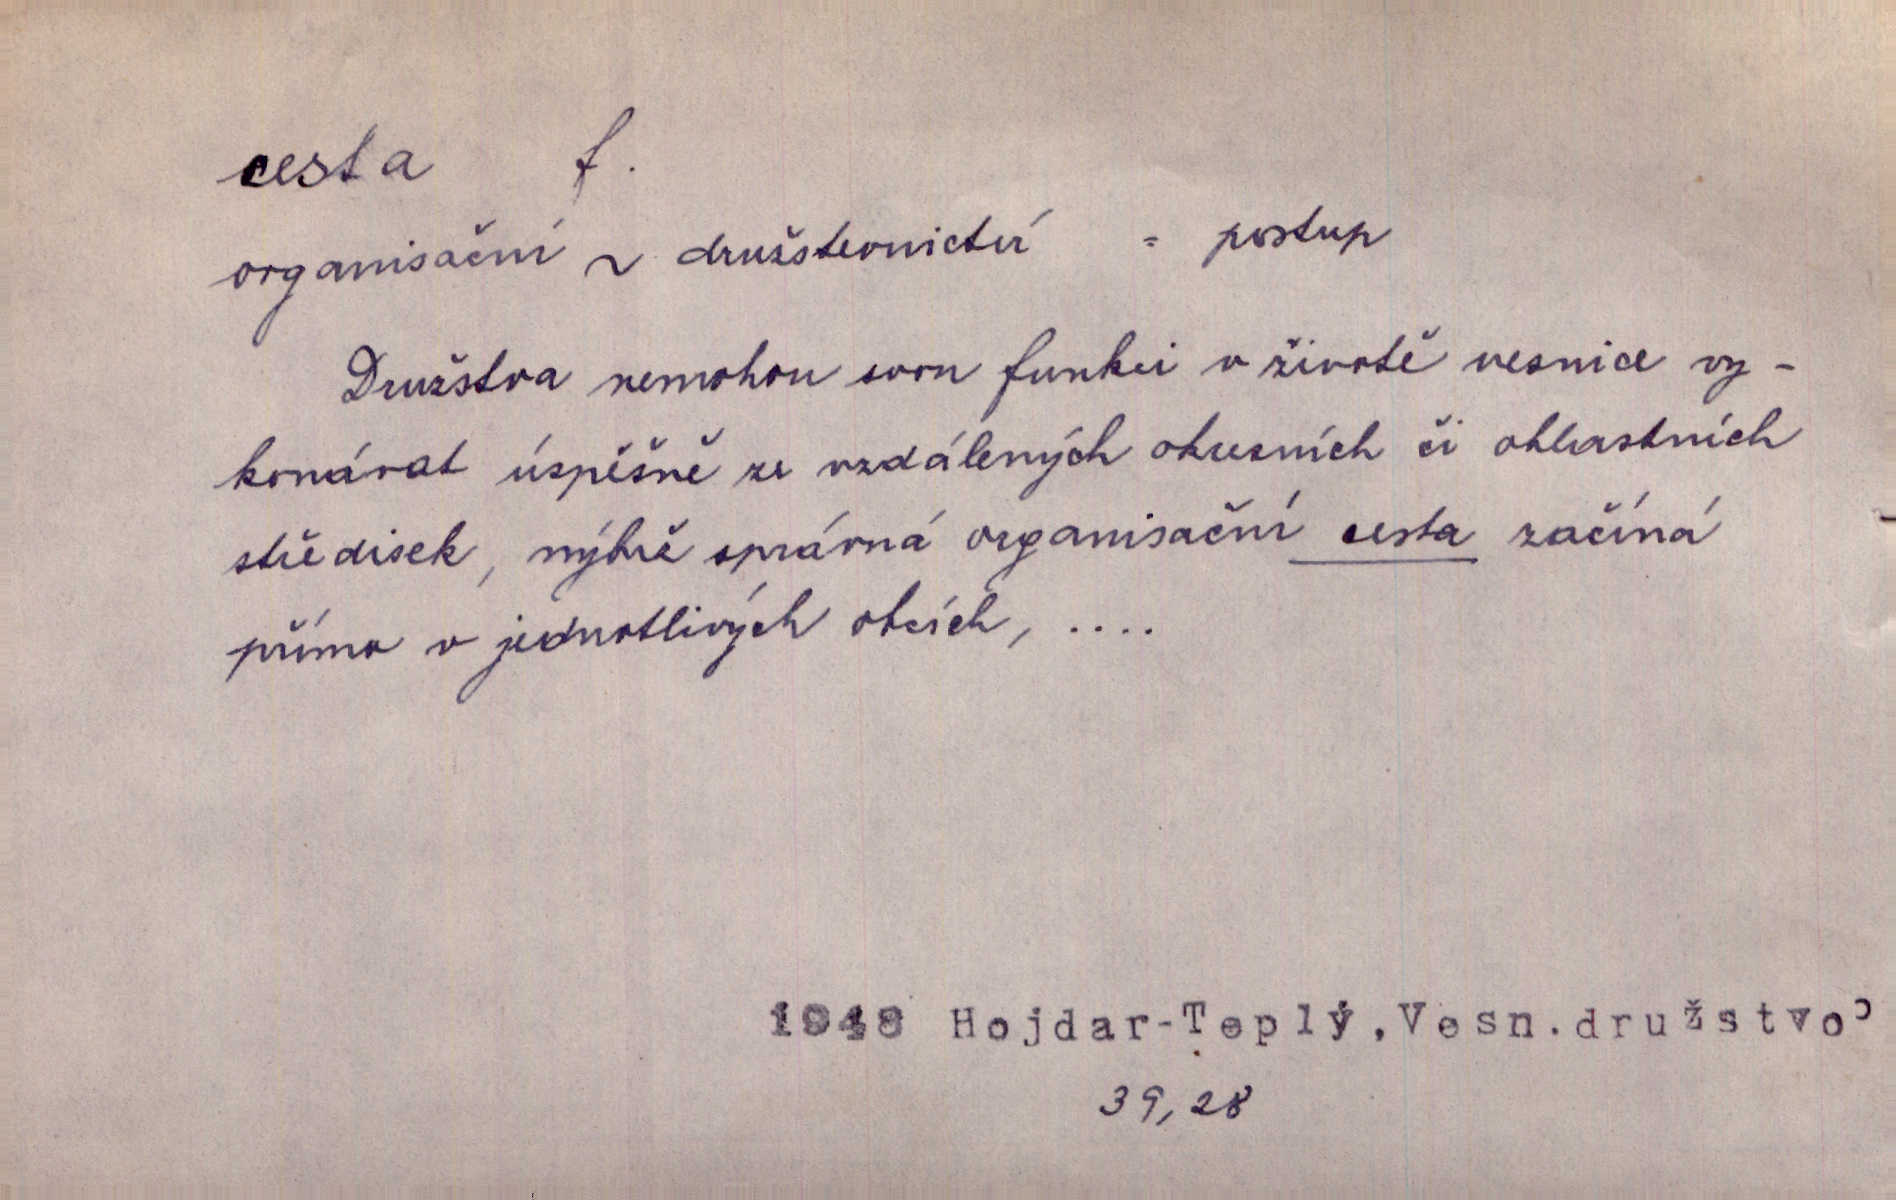 cesta f.
organisační ~ družstevnictví = postup
Družstva nemohou svou funkci v životě vesnice vy-
konávat úspěšně ze vzdálených okresních či oblastních
středisek, nýbrž správná organisační cesta začíná
přímo v jednotlivých obcích, ....
1948 Hojdar-Teplý,Vesn.družstvo
39,28